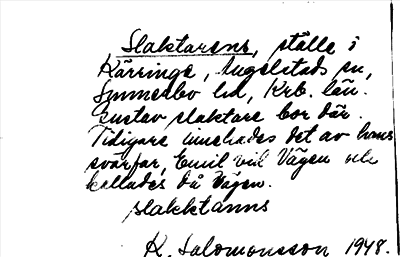 Slaktarens, ställe i
Kärringe, Angelstads sn,
Sunnerbo hd, Krb. län.
Gustav slaktare bor där.
Tidigare innehades det av hans
svärfar, Emil vid Vägen och
kallades då Vägen.
slakktanns
K. Salomonsson 1948.